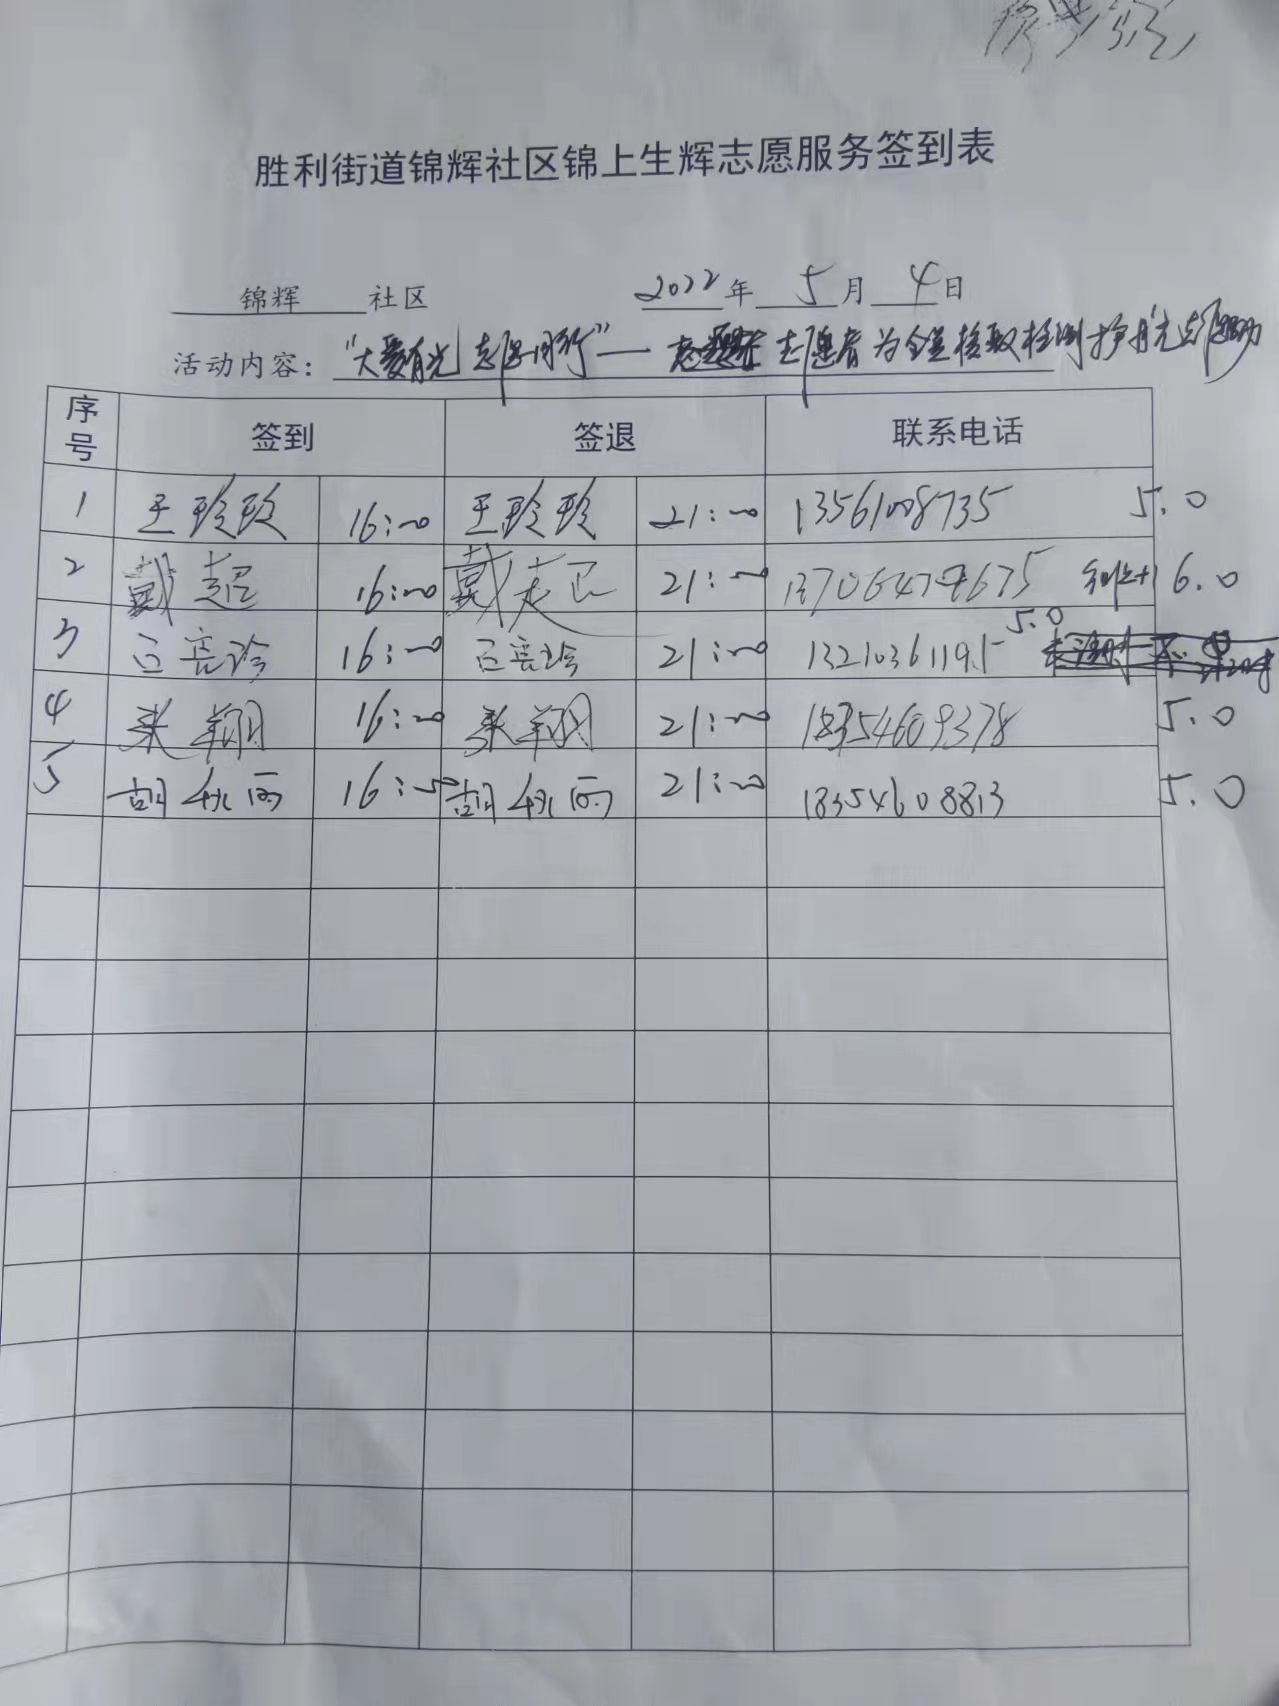 胜利街道锦辉社区锦上生辉志愿服务签到表
锦辉 社区 2022年 5月 4日
活动内容: "大爱有光 志愿同行"— 志愿者为全员核酸检测护航志愿活动
序号 签到 签退 联系电话
1 王玲玲 16:00 王玲玲 21:00 13561008735 5.0
2 戴超 16:00 戴超 21:00 13706479675 6.0
3 吕亮珍 16:00 吕亮珍 21:00 13210361195 5.0
4 张翔 16:00 张翔 21:00 18354609378 5.0
5 胡秋丽 16:00 胡秋丽 21:00 18354608813 5.0